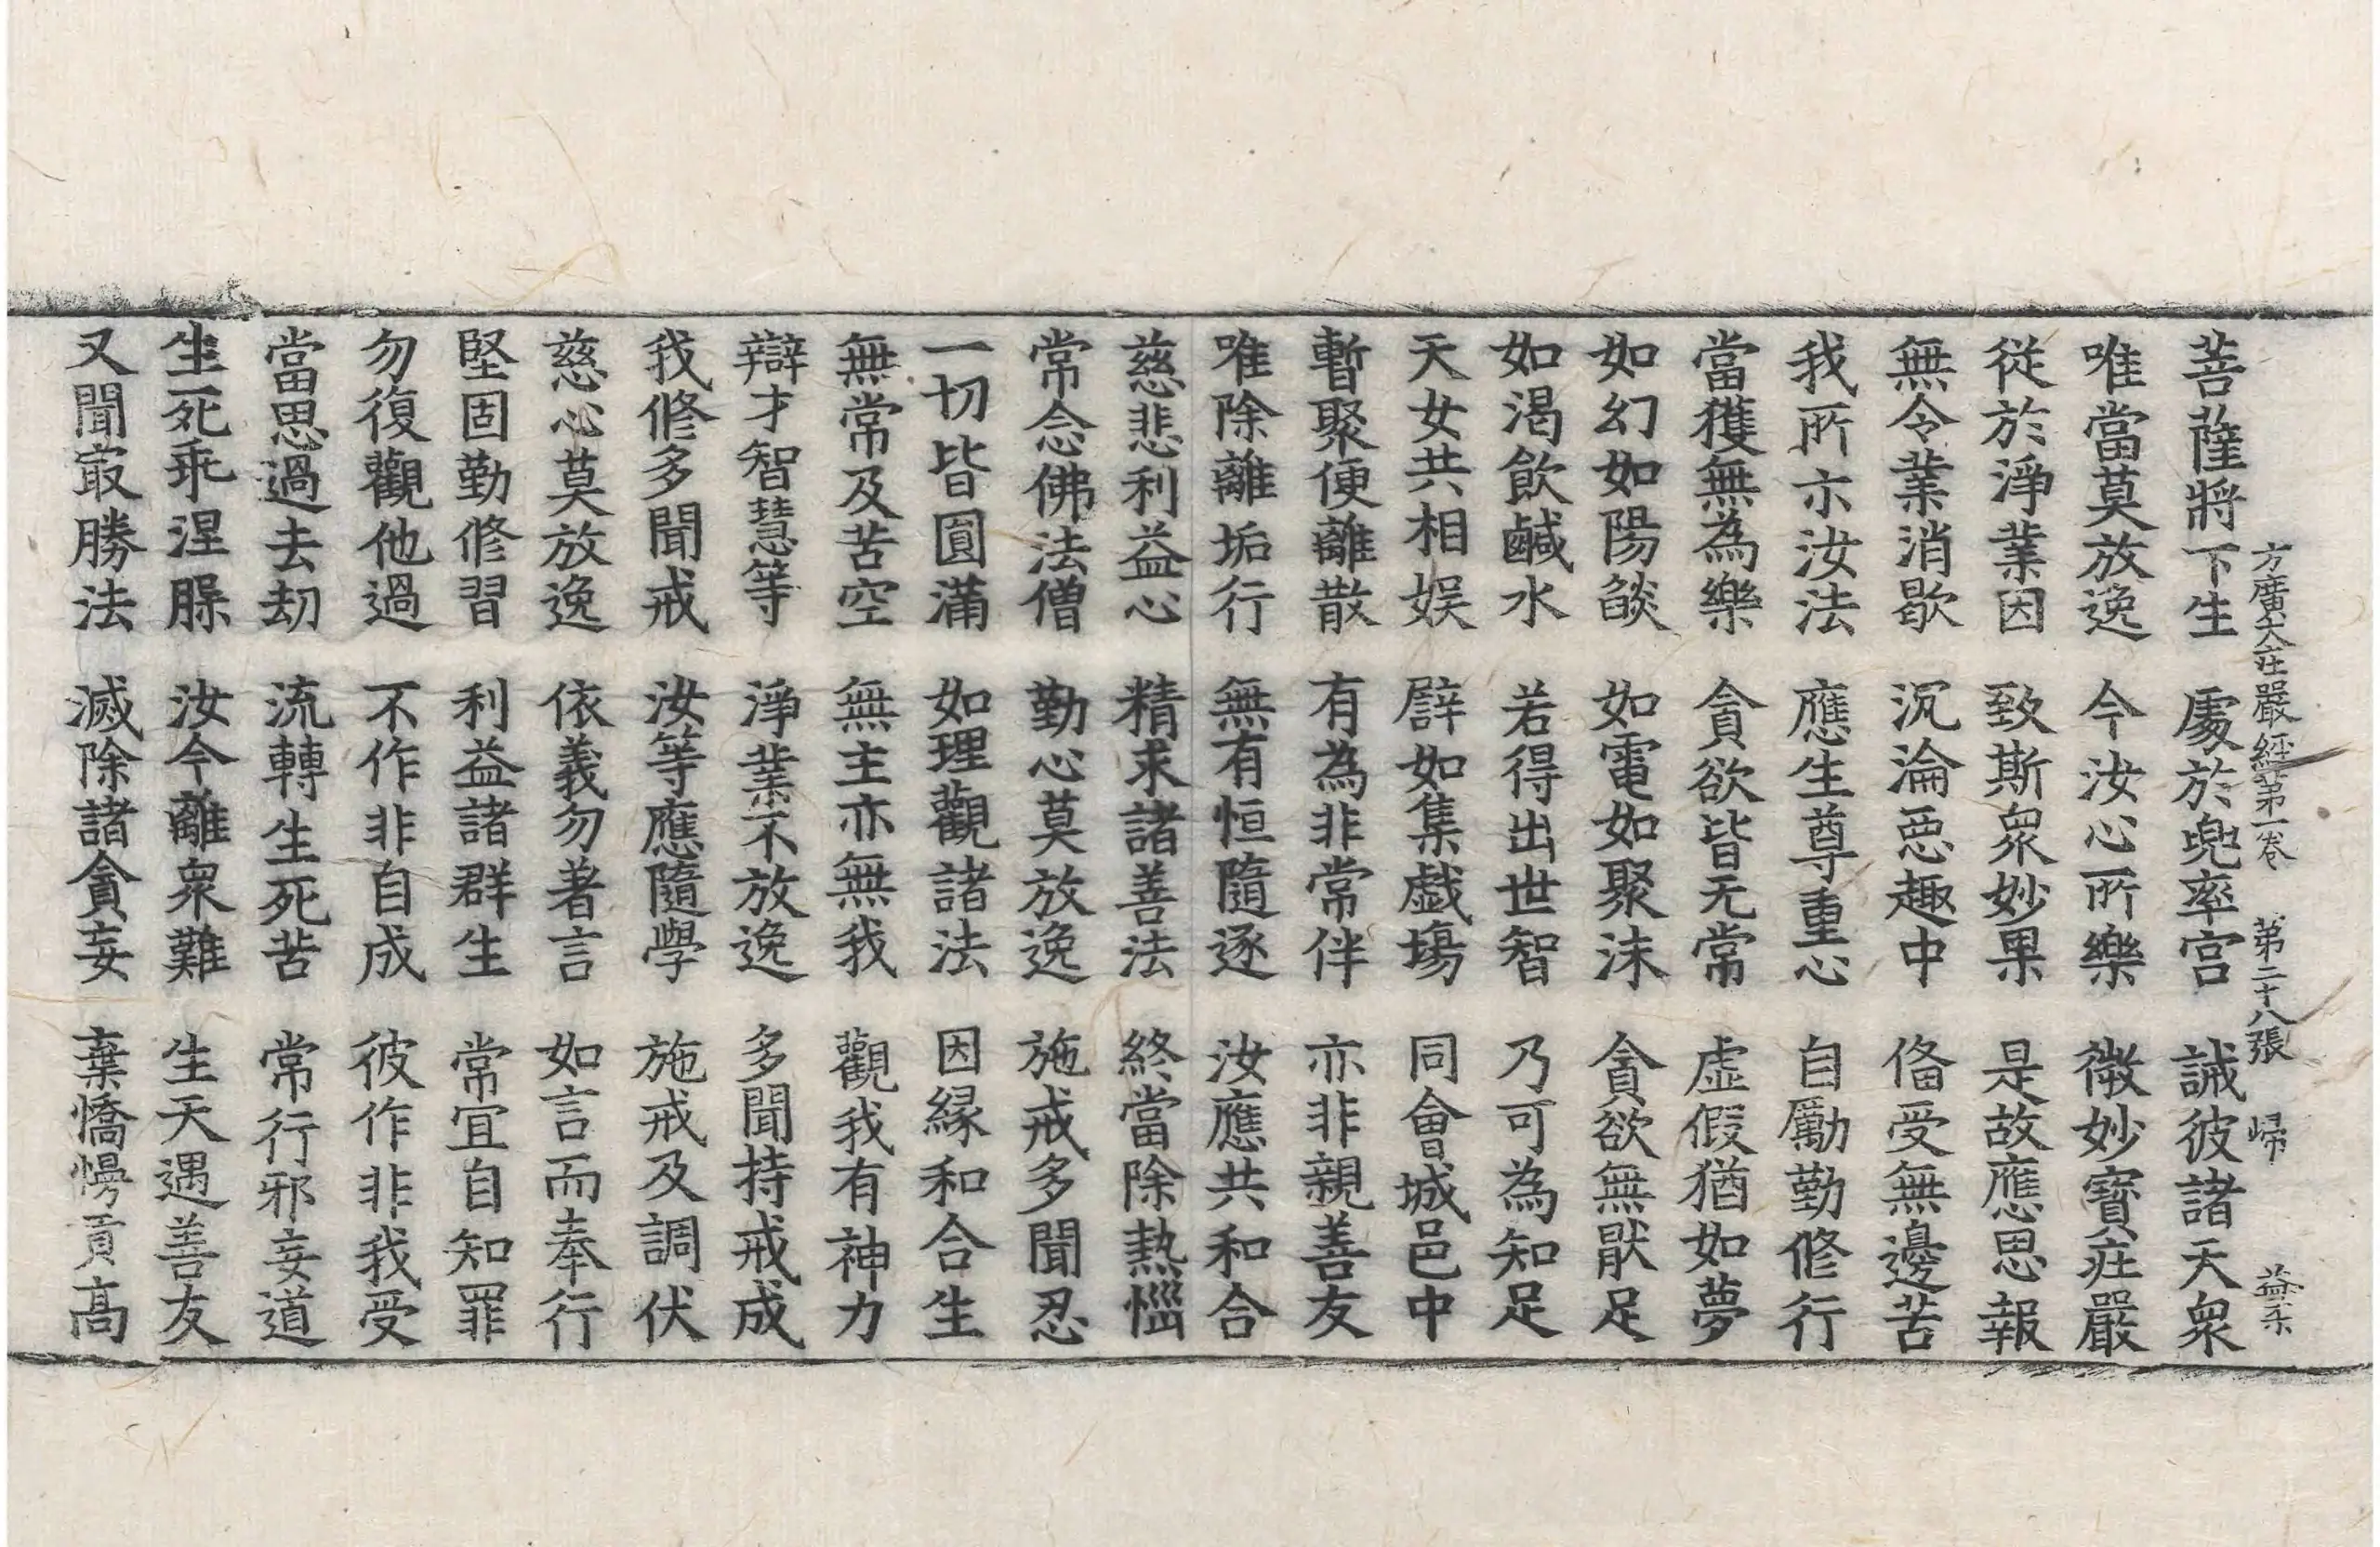 方廣大莊嚴經第一卷 第二十八張 歸 益柔
菩薩將下生 處於兜率宮 誡彼諸天衆
唯當莫放逸 今汝心所樂 微妙寶莊嚴
從於淨業因 致斯衆妙果 是故應思報
無令業消歇 沉淪惡趣中 俻受無邊苦
我所示汝法 應生尊重心 自勵勤修行
當獲無為樂 貪欲皆无常 虛假猶如夢
如幻如陽燄 如電如聚沫 貪欲無猒足
如渴飲鹹水 若得出世智 乃可為知足
天女共相娱 譬如集戲塲 同會城邑中
暫聚便離散 有為非常伴 亦非親善友
唯除離垢行 無有恒隨逐 汝應共和合
慈悲利益心 精求諸善法 終當除熱惱
常念佛法僧 勤心莫放逸 施戒多聞忍
一切皆圓滿 如理觀諸法 因緣和合生
無常及苦空 無主亦無我 觀我有神力
辯才智慧等 淨業不放逸 多聞持戒成
我修多聞戒 汝等應隨學 施戒及調伏
慈心莫放逸 依義勿著言 如言而奉行
堅固勤修習 利益諸群生 常冝自知罪
勿復觀他過 不作非自成 彼作非我受
當思過去劫 流轉生死苦 常行邪妄道
生死乖涅㬷 汝今離衆難 生天遇善友
又聞㝡勝法 滅除諸貪妄 棄憍慢貢髙